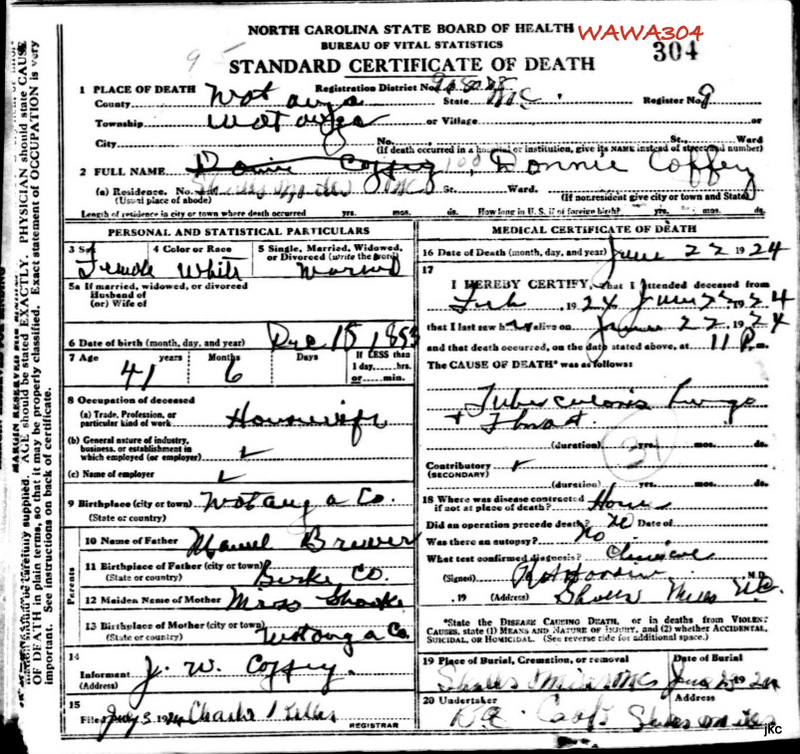 NORTH CAROLINA STATE BOARD OF HEALTH WAWA304
BUREAU OF VITAL STATISTICS 304
95
STANDARD CERTIFICATE OF DEATH
1 PLACE OF DEATH Registration District No.
County Watauga State N.C. Register No. 9
Township Watauga or Village or
City No. St. Ward
(If death occurred in a hospital or institution, give its NAME instead of street and number)
2 FULL NAME Donnie Coffey
(a) Residence. No. St. Ward.
(Usual place of abode) (If nonresident give city or town and State)
Length of residence in city or town where death occurred yrs. mos. ds. How long in U. S. if of foreign birth? yrs. mos. ds.
PERSONAL AND STATISTICAL PARTICULARS
3 Sex 4 Color or Race 5 Single, Married, Widowed, or Divorced (write the word)
Female White Married
5a If married, widowed, or divorced
Husband of
(or) Wife of
6 Date of birth (month, day, and year) Dec 15, 1883
7 Age years Months Days If LESS than
1 day, hrs.
or min.
41 6
8 Occupation of deceased
(a) Trade, Profession, or
particular kind of work Housewife
(b) General nature of industry,
business, or establishment in
which employed (or employer)
(c) Name of employer
9 Birthplace (city or town) Watauga Co.
(State or country)
Parents
10 Name of Father Brewer
11 Birthplace of Father (city or town)
(State or country) Burke Co.
12 Maiden Name of Mother Miss
13 Birthplace of Mother (city or town)
(State or country) Watauga Co.
14
Informant J. W. Coffey
(Address)
15
Filed July 3, 1924 Charles
REGISTRAR
MEDICAL CERTIFICATE OF DEATH
16 Date of Death (month, day, and year) June 22 1924
17
I HEREBY CERTIFY, that I attended deceased from
Feb, 1924 June 22, 1924
that I last saw her alive on June 22, 1924
and that death occurred, on the date stated above, at 11 P.m.
The CAUSE OF DEATH* was as follows:
Tuberculosis Lungs
+ Throat.
(duration) yrs. mos. ds.
Contributory
(SECONDARY)
(duration) yrs. mos. ds.
18 Where was disease contracted
if not at place of death? Home
Did an operation precede death? No Date of
Was there an autopsy? No
What test confirmed diagnosis? Clinical
(Signed) M. D.
, 19 (Address) Shulls Mills N.C.
*State the DISEASE CAUSING DEATH, or in deaths from VIOLENT
CAUSES, state (1) MEANS AND NATURE OF INJURY, and (2) whether ACCIDENTAL,
SUICIDAL, or HOMICIDAL. (See reverse ride for additional space.)
19 Place of Burial, Cremation, or removal Date of Burial
Shulls Mills NC 1924
20 Undertaker Address
Shulls Mills
jkc
AGE should be stated EXACTLY. PHYSICIAN should state CAUSE
OF DEATH in plain terms, so that it may be properly classified. Exact statement of OCCUPATION is very
important. See instructions on back of certificate.